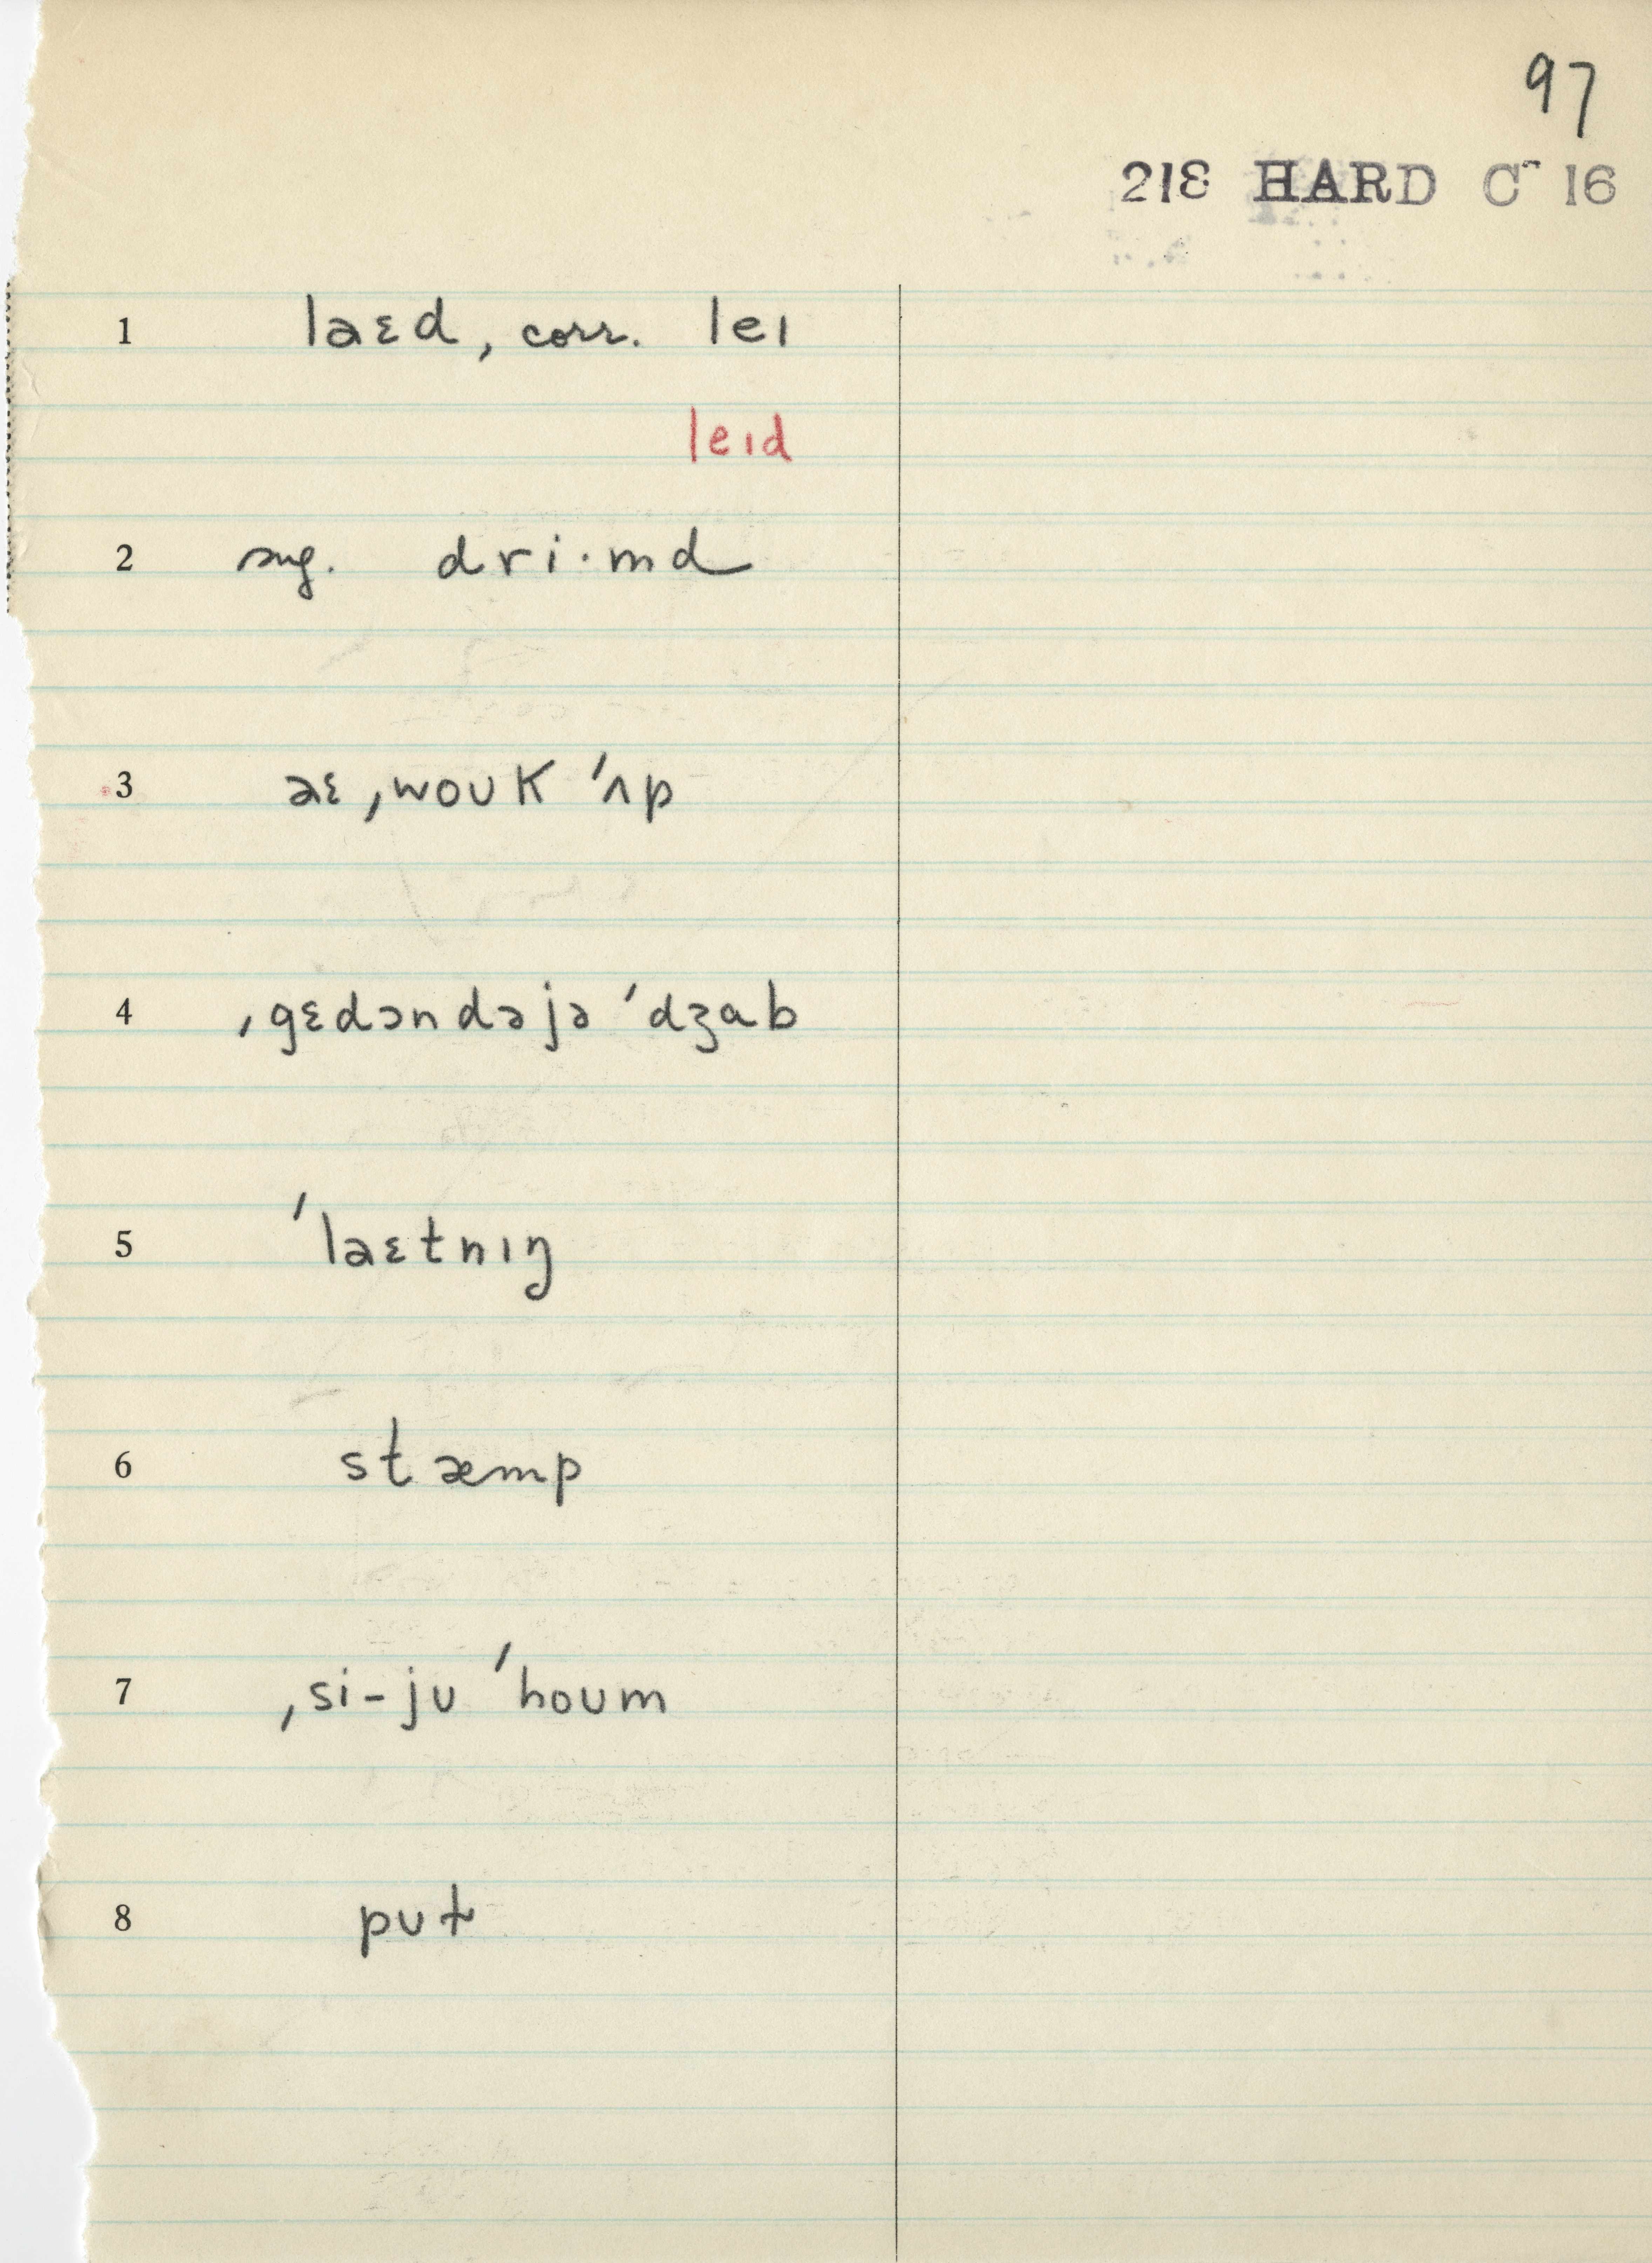 97
218 HARD Co 16
1 laɛd, corr. leɪ
leɪd
2 sug. dri·md
3 aɛ ˌwoʊk ˈʌp
4 ˌgɛdəndəjə ˈdʒab
5 ˈlaɛtnɪŋ
6 stæmp
7 ˌsi-jʊ ˈhoʊm
8 pʊt